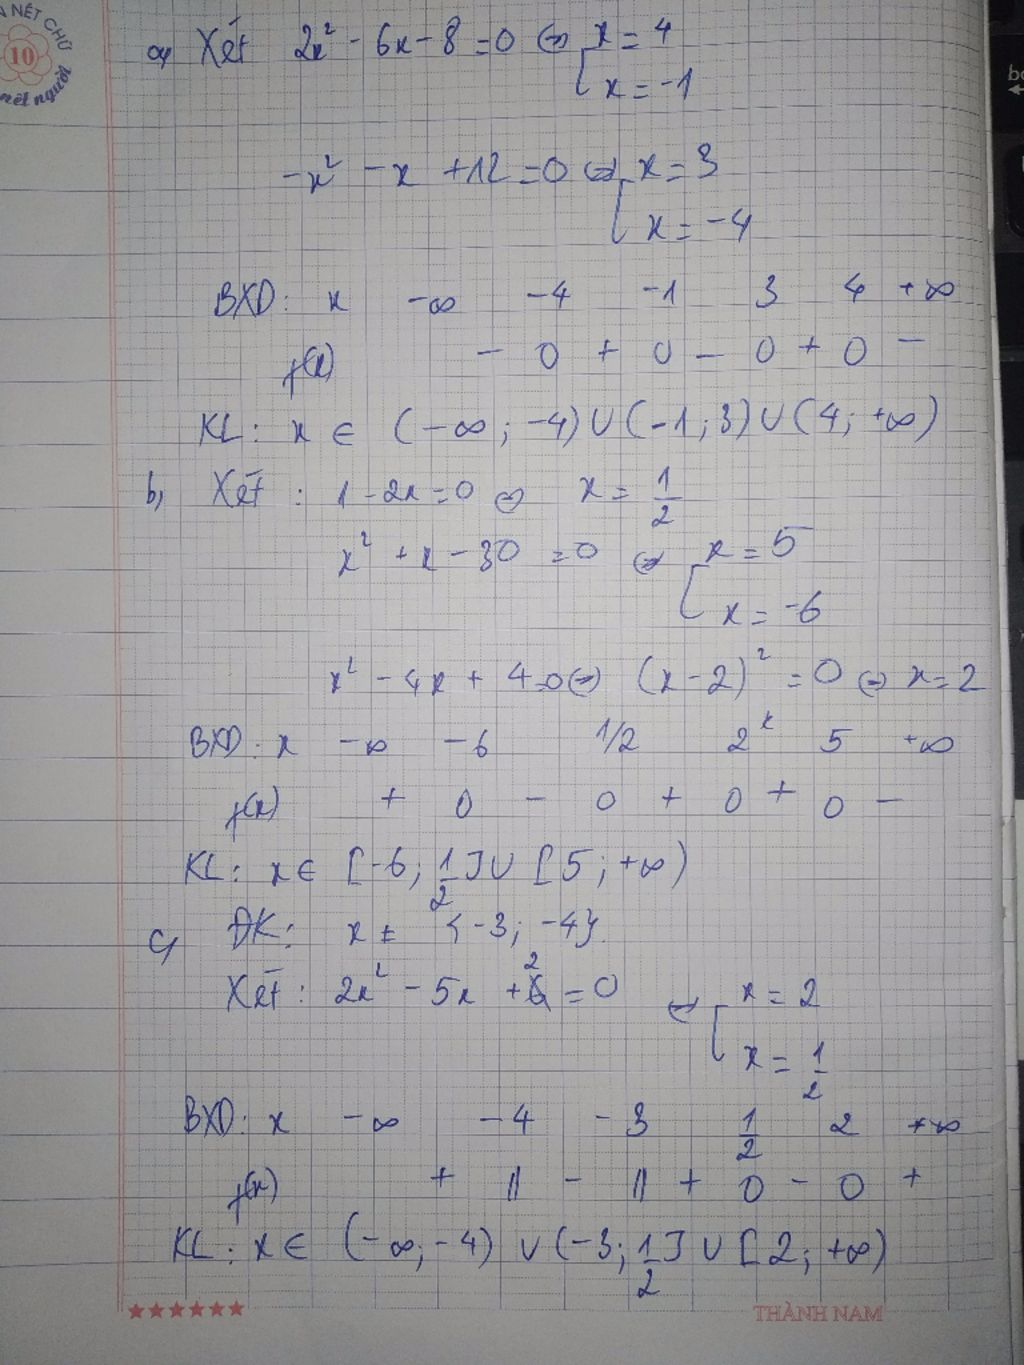 N NẾT CHỮ
10
nết người
a, Xét 2x² - 6x - 8 = 0 ⇔ [ x = 4
x = -1
-x² - x + 12 = 0 ⇔ [ x = 3
x = -4
BXD: x -∞ -4 -1 3 4 +∞
f(x) - 0 + 0 - 0 + 0 -
KL: x ∈ (-∞; -4) ∪ (-1; 3) ∪ (4; +∞)
b, Xét: 1 - 2x = 0 ⇔ x = 1/2
x² + x - 30 = 0 ⇔ [ x = 5
x = -6
x² - 4x + 4 = 0 ⇔ (x - 2)² = 0 ⇔ x = 2
BXD: x -∞ -6 1/2 2ᵏ 5 +∞
f(x) + 0 - 0 + 0 + 0 -
KL: x ∈ [-6; 1/2] ∪ [5; +∞)
c, ĐK: x ≠ {-3; -4}
Xét: 2x² - 5x + 2 = 0 ⇔ [ x = 2
x = 1/2
BXD: x -∞ -4 -3 1/2 2 +∞
f(x) + || - || + 0 - 0 +
KL: x ∈ (-∞; -4) ∪ (-3; 1/2] ∪ [2; +∞)
THÀNH NAM